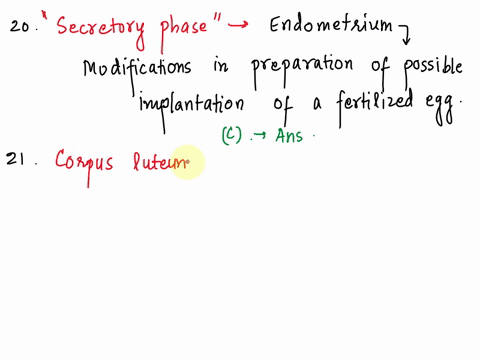 20. "Secretory phase" → Endometrium
Modifications in preparation of possible
implantation of a fertilized egg.
(C) → Ans.
21. Corpus luteum